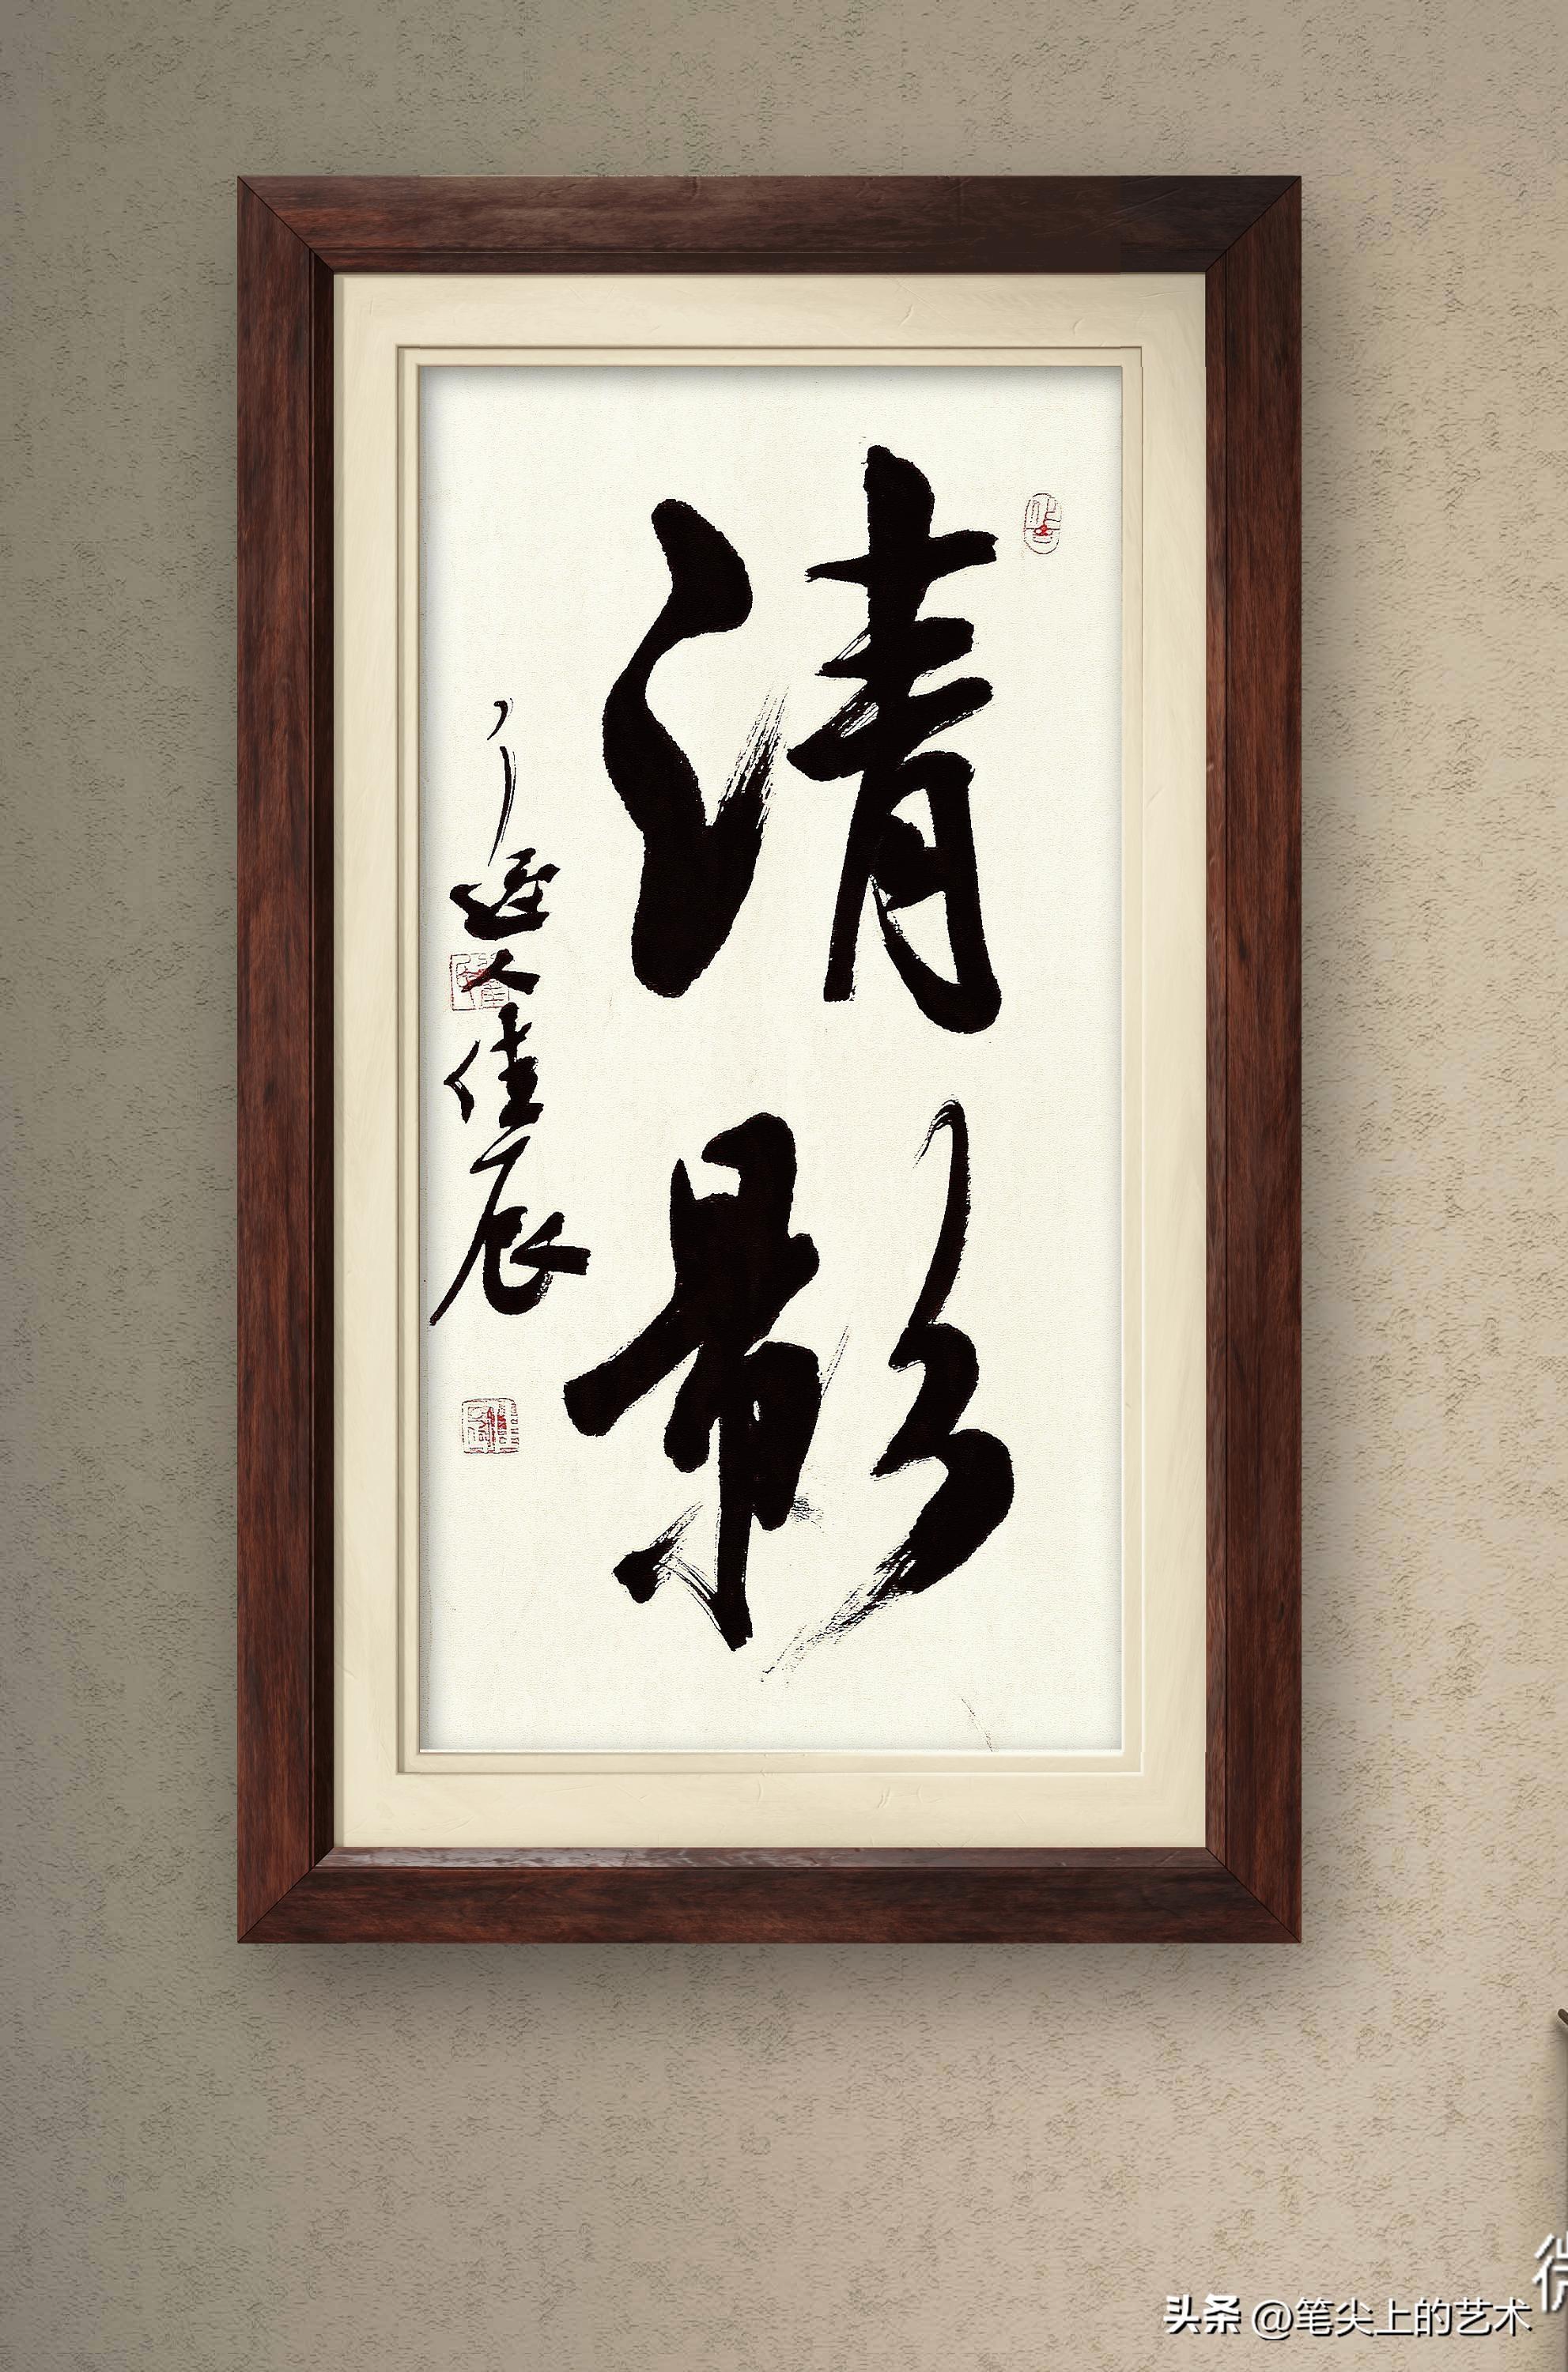 清影
人佳辰
头条 @笔尖上的艺术